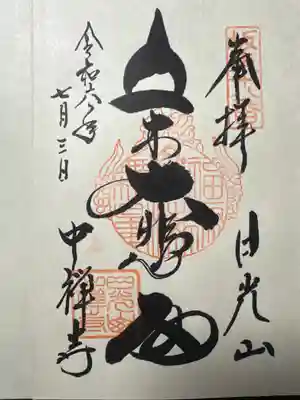 奉拝
日光山
立木大悲
令和六年
七月三日
中禅寺